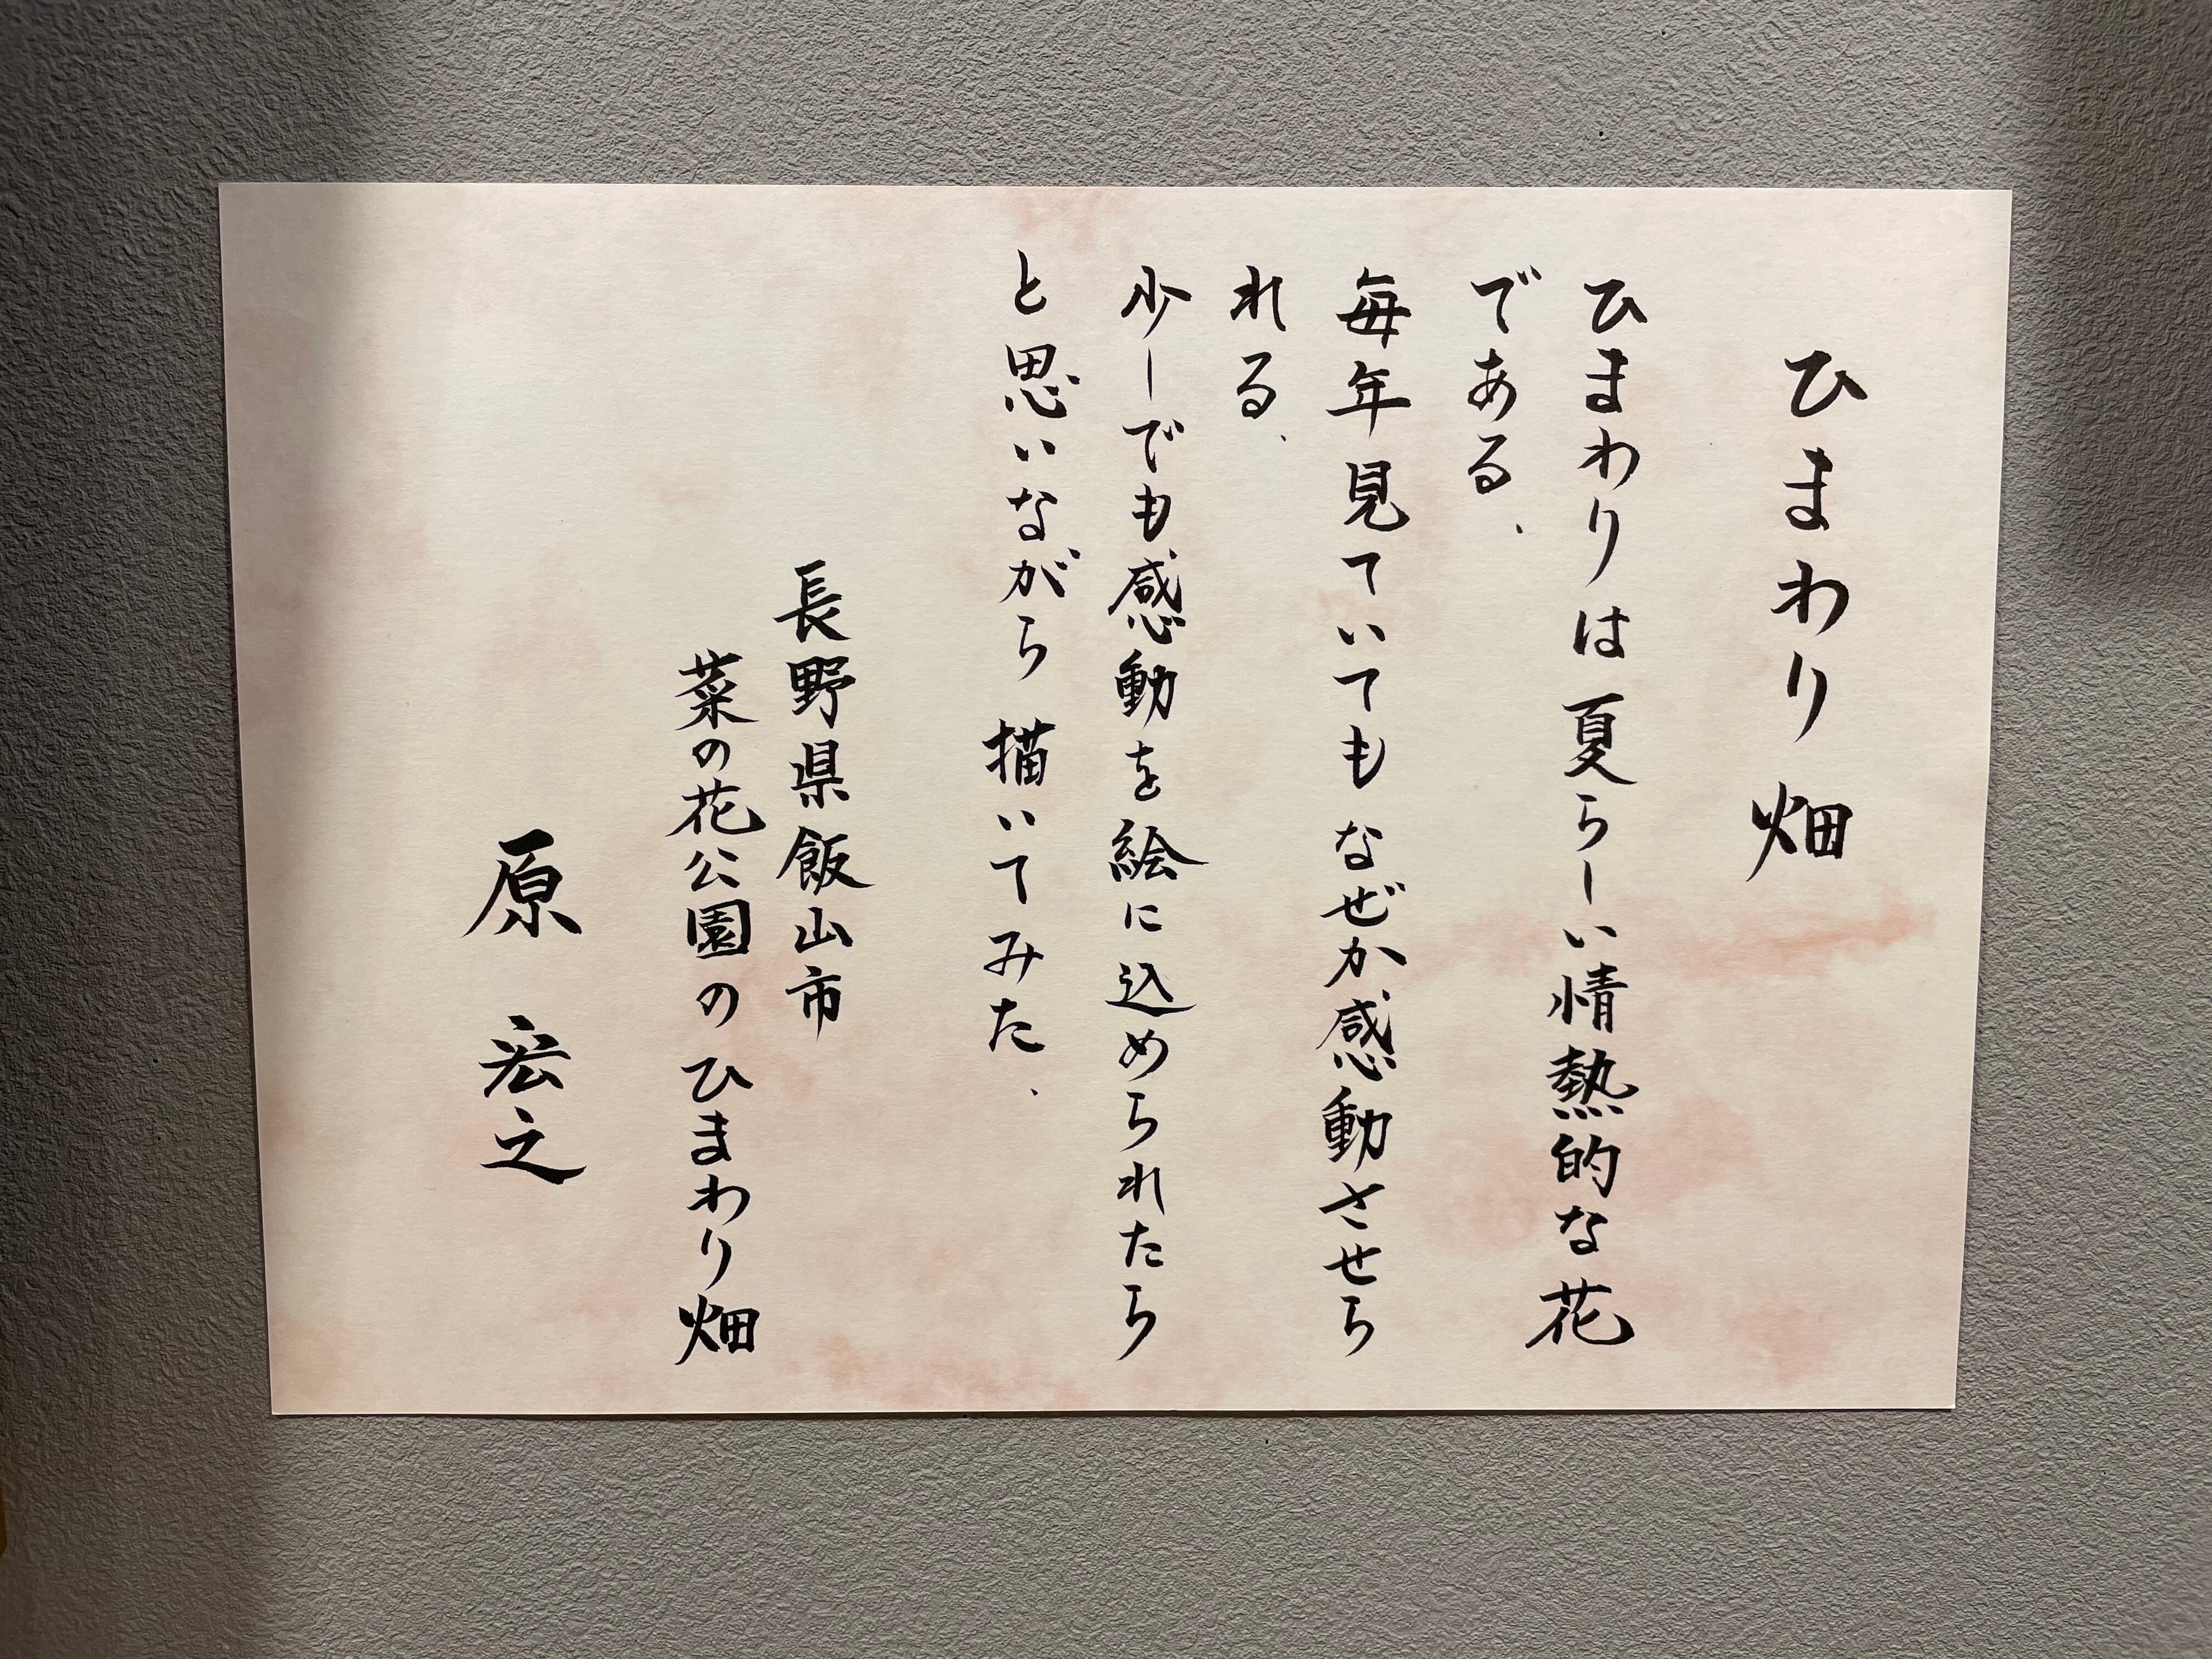 ひまわり畑
ひまわりは夏らしい情熱的な花
である、
毎年見ていてもなぜか感動させら
れる、
少しでも感動を絵に込められたら
と思いながら描いてみた、
長野県飯山市
菜の花公園のひまわり畑
原 宏之